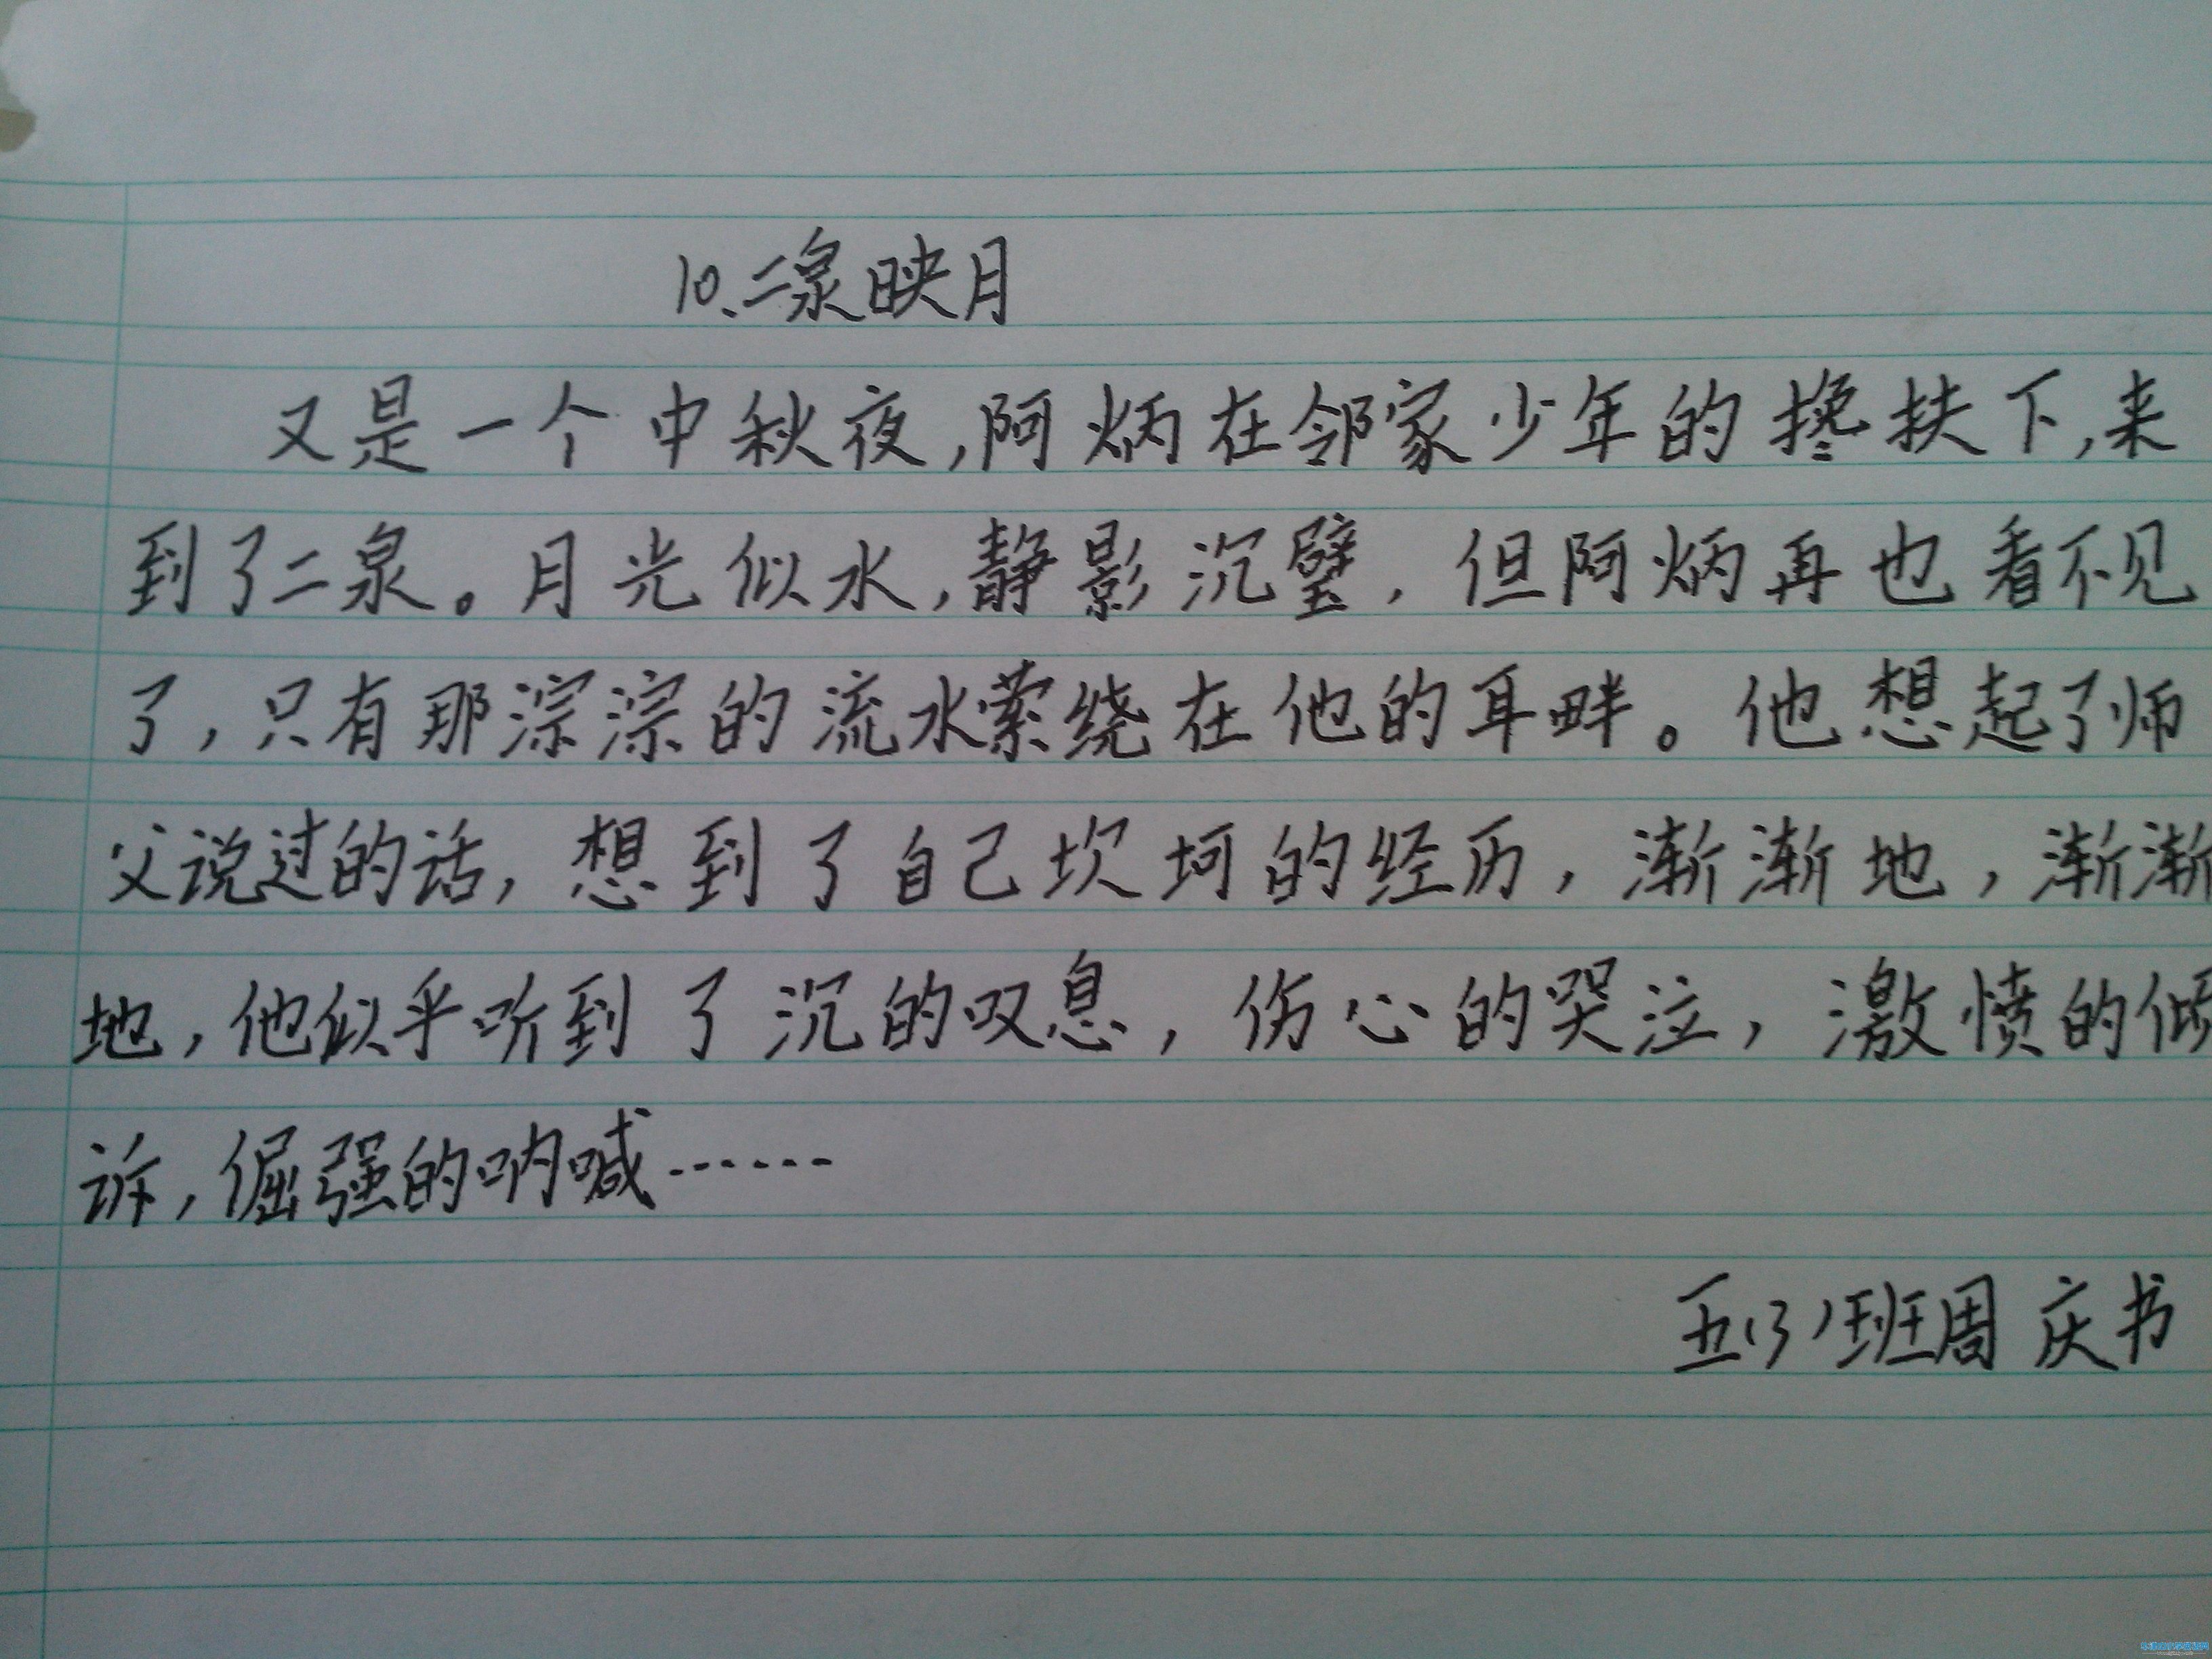 10、二泉映月
又是一个中秋夜,阿炳在邻家少年的搀扶下,来
到了二泉。月光似水,静影沉璧,但阿炳再也看不见
了,只有那淙淙的流水萦绕在他的耳畔。他想起了师
父说过的话,想到了自己坎坷的经历,渐渐地,渐渐
地,他似乎听到了沉的叹息,伤心的哭泣,激愤的倾
诉,倔强的呐喊……
五(3)班周庆书